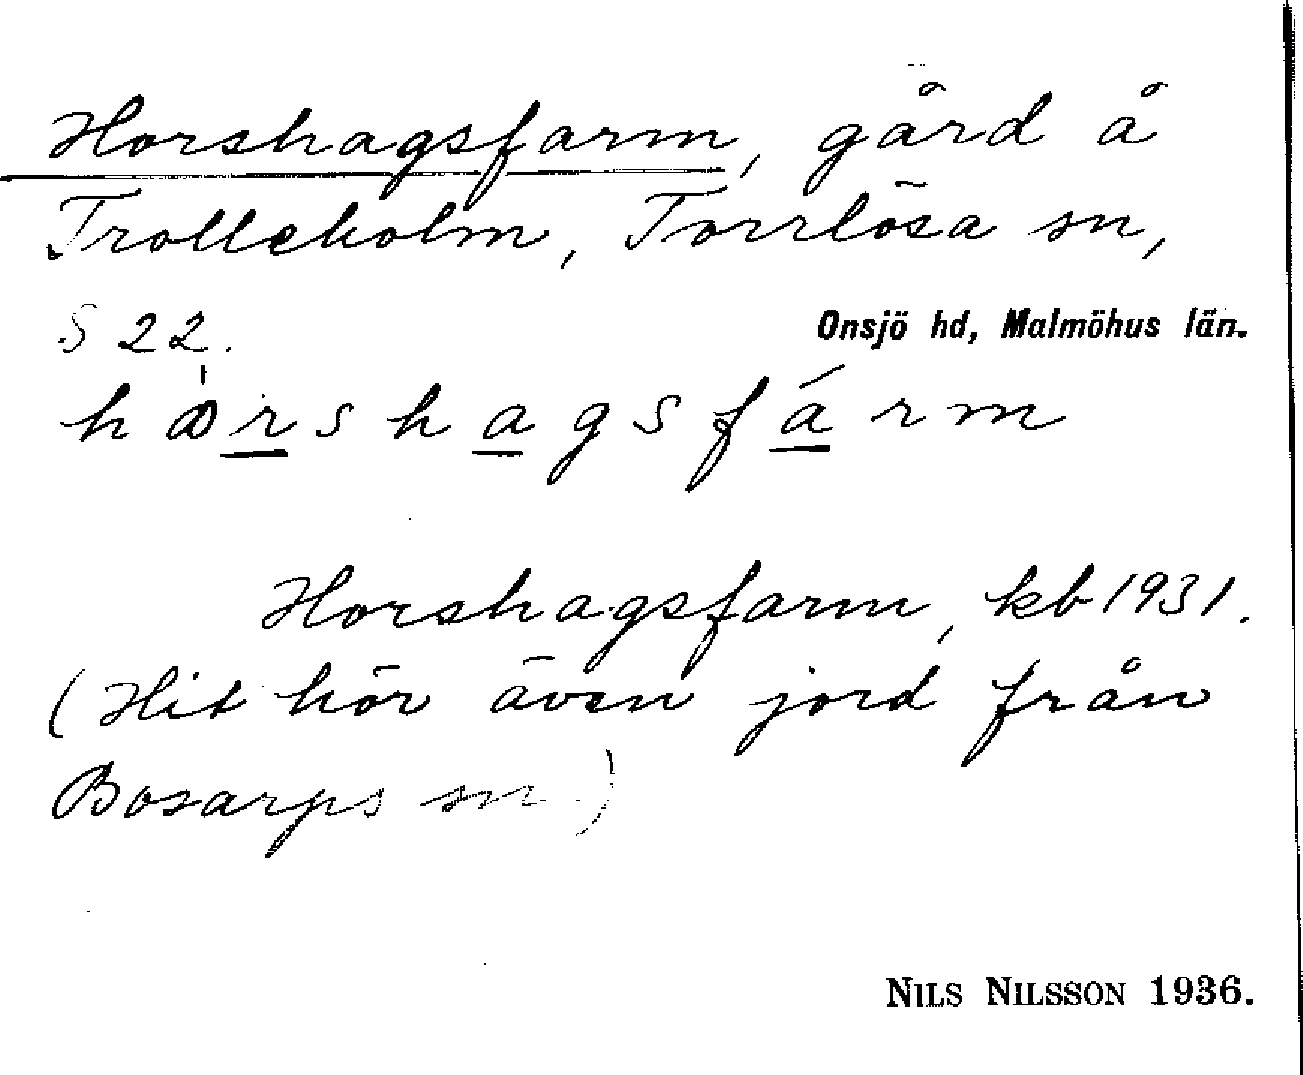 Horshagsfarm, gård å
Trolleholm, Torrlösa sn,
S 22.
Onsjö hd, Malmöhus län.
Horshagsfarm, kb 1931.
(Hit hör även jord från
Bosarps sn.)
NILS NILSSON 1936.